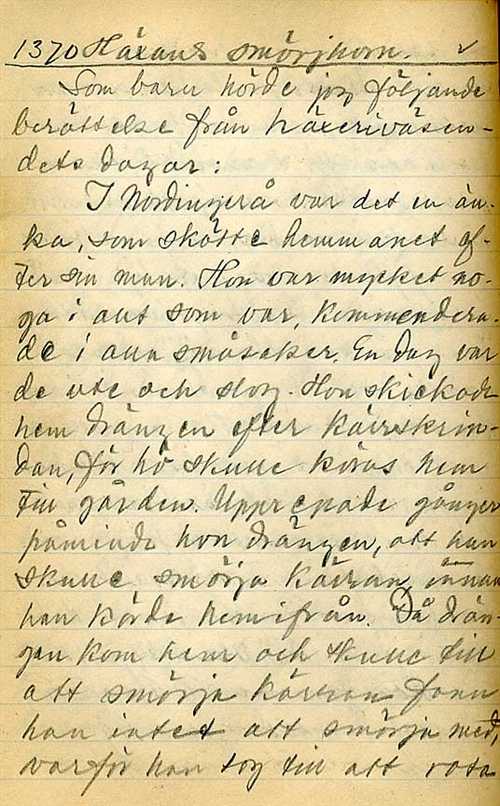 1370 Häxans smörjhorn. ✓
Som barn hörde jag följande
berättelse från häxeriväsen-
dets dagar:
I Nordingrå var det en än-
ka, som skötte hemmanet ef-
ter sin man. Hon var mycket no-
ga i allt som var, kommendera-
de i alla småsaker. En dag var
de ute och slog. Hon skickade
hem drängen efter kärrskrin-
dan, för hö skulle köras hem
till gården. Upprepade gånger
påminde hon drängen, att han
skulle smörja kärran, innan
han körde hemifrån. Då drän-
gen kom hem och skulle till
att smörja kärran fann
han intet att smörja med,
varför han tog till att rota